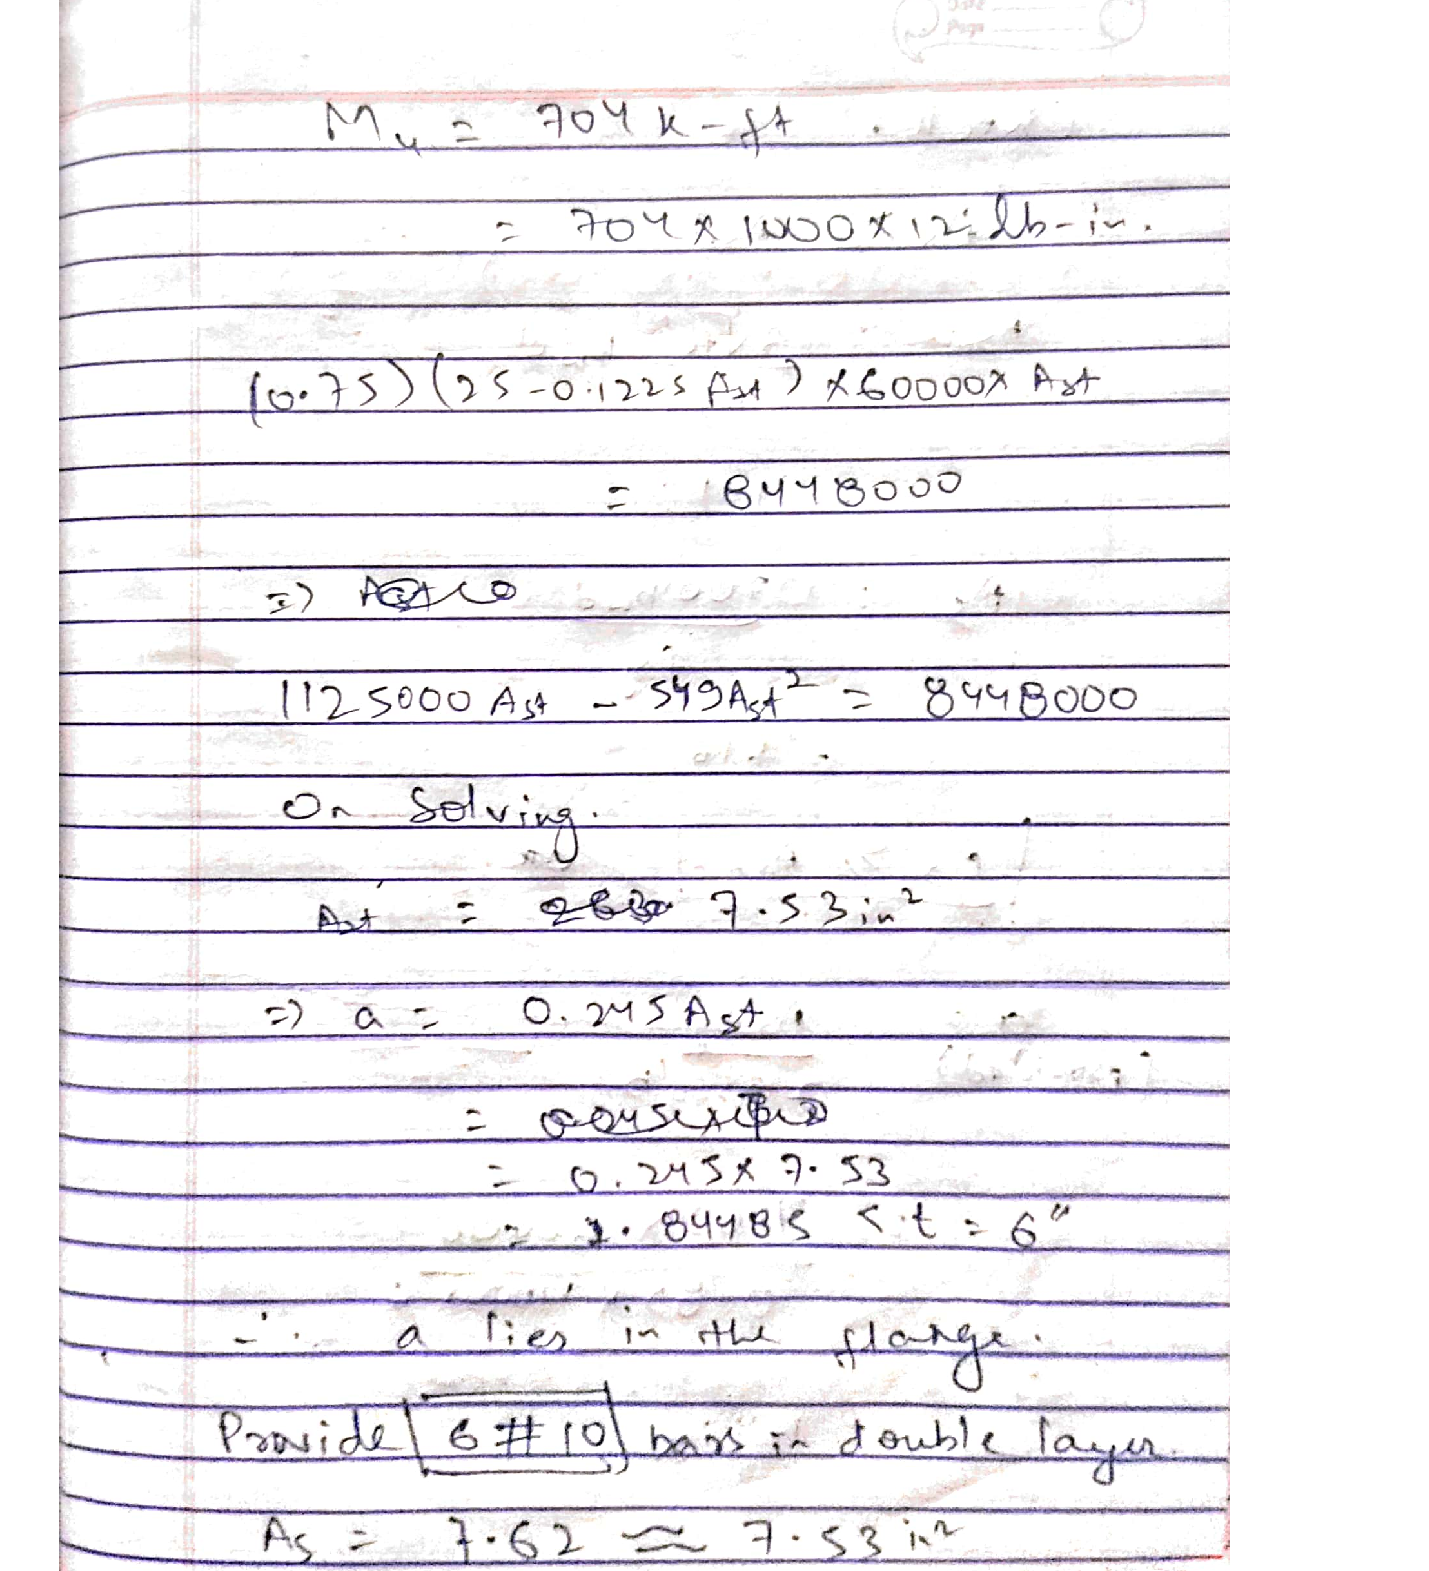 Mu = 704 k-ft
= 704 x 1000 x 12 lb-in.
(0.75)(25-0.1225 Ast) x60000x Ast
= 8448000
=>
1125000 Ast - 549Ast² = 8448000
On Solving.
Ast = 7.53 in²
=> a = 0.245 Ast.
=
= 0.245 x 7.53
= 1.84485 < t = 6"
∴ a lies in the flange.
Provide 6 # 10 bars in double layer.
As = 7.62 ≈ 7.53 in²